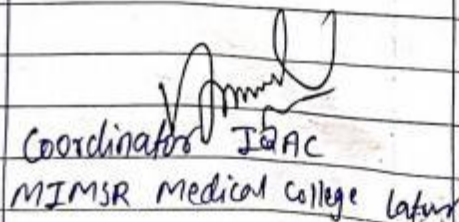 Coordinator IQAC
MIMSR Medical College Latur